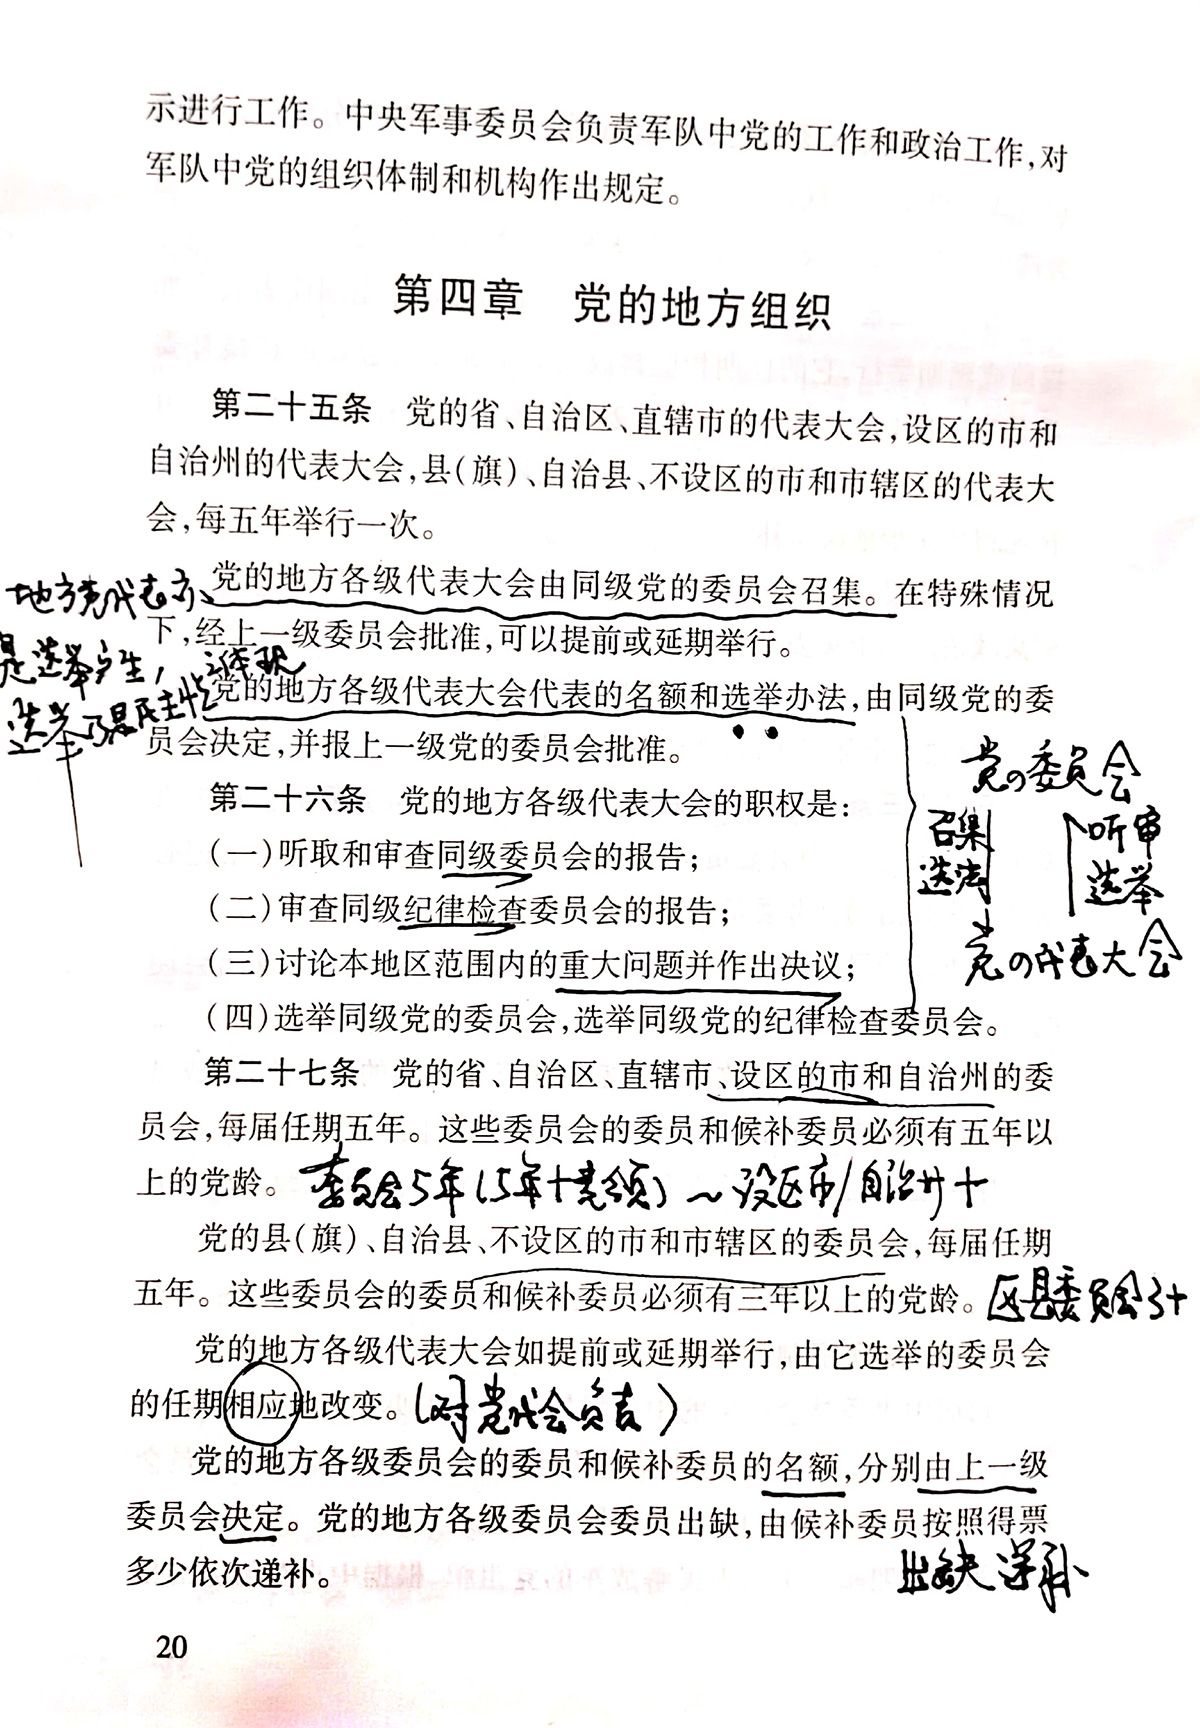 示进行工作。中央军事委员会负责军队中党的工作和政治工作,对
军队中党的组织体制和机构作出规定。
第四章 党的地方组织
第二十五条 党的省、自治区、直辖市的代表大会,设区的市和
自治州的代表大会,县(旗)、自治县、不设区的市和市辖区的代表大
会,每五年举行一次。
党的地方各级代表大会由同级党的委员会召集。在特殊情况
下,经上一级委员会批准,可以提前或延期举行。
党的地方各级代表大会代表的名额和选举办法,由同级党的委
员会决定,并报上一级党的委员会批准。
地方党代表
是选举产生,体现
选举 是民主
第二十六条 党的地方各级代表大会的职权是:
(一)听取和审查同级委员会的报告;
(二)审查同级纪律检查委员会的报告;
(三)讨论本地区范围内的重大问题并作出决议;
(四)选举同级党的委员会,选举同级党的纪律检查委员会。
党の委员会
召集 听审
选 选举
党の代表大会
第二十七条 党的省、自治区、直辖市、设区的市和自治州的委
员会,每届任期五年。这些委员会的委员和候补委员必须有五年以
上的党龄。
委员会5年(5年+党领)~设区市/自治州+
党的县(旗)、自治县、不设区的市和市辖区的委员会,每届任期
五年。这些委员会的委员和候补委员必须有三年以上的党龄。
区县委员会3+
党的地方各级代表大会如提前或延期举行,由它选举的委员会
的任期相应地改变。
(对党代会负责)
党的地方各级委员会的委员和候补委员的名额,分别由上一级
委员会决定。党的地方各级委员会委员出缺,由候补委员按照得票
多少依次递补。
出缺 递补
20